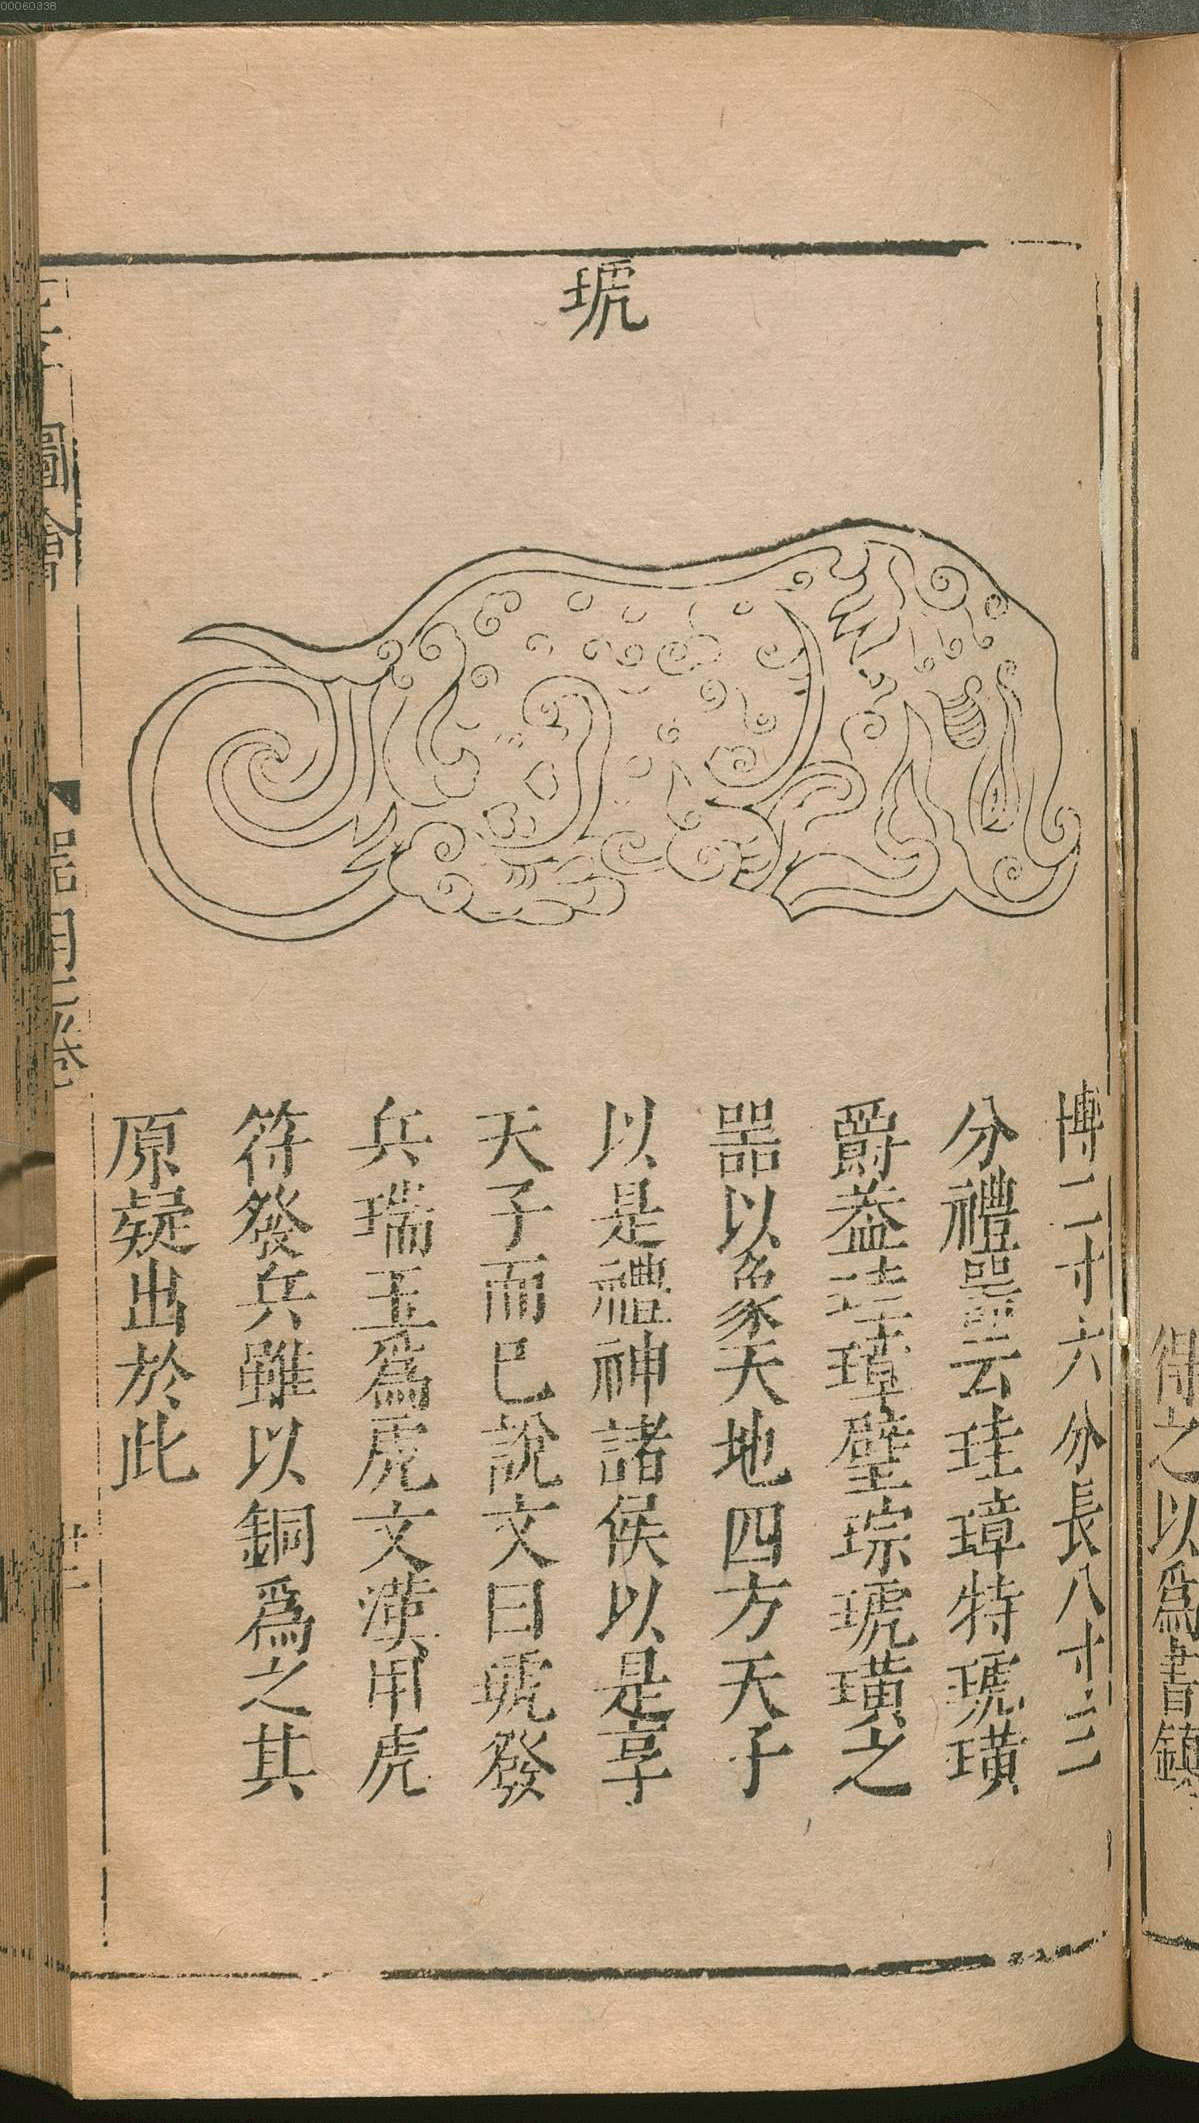 得之以為書鎮
琥
博二寸六分長八寸三
分禮器云珪璋特琥璜
爵蓋珪璋璧琮琥璜之
器以象天地四方天子
以是禮神諸侯以是享
天子而巳說文曰琥發
兵瑞玉為虎文漢用虎
符發兵雖以銅為之其
原疑出於此
圖會
器用二卷
廿二
00060338